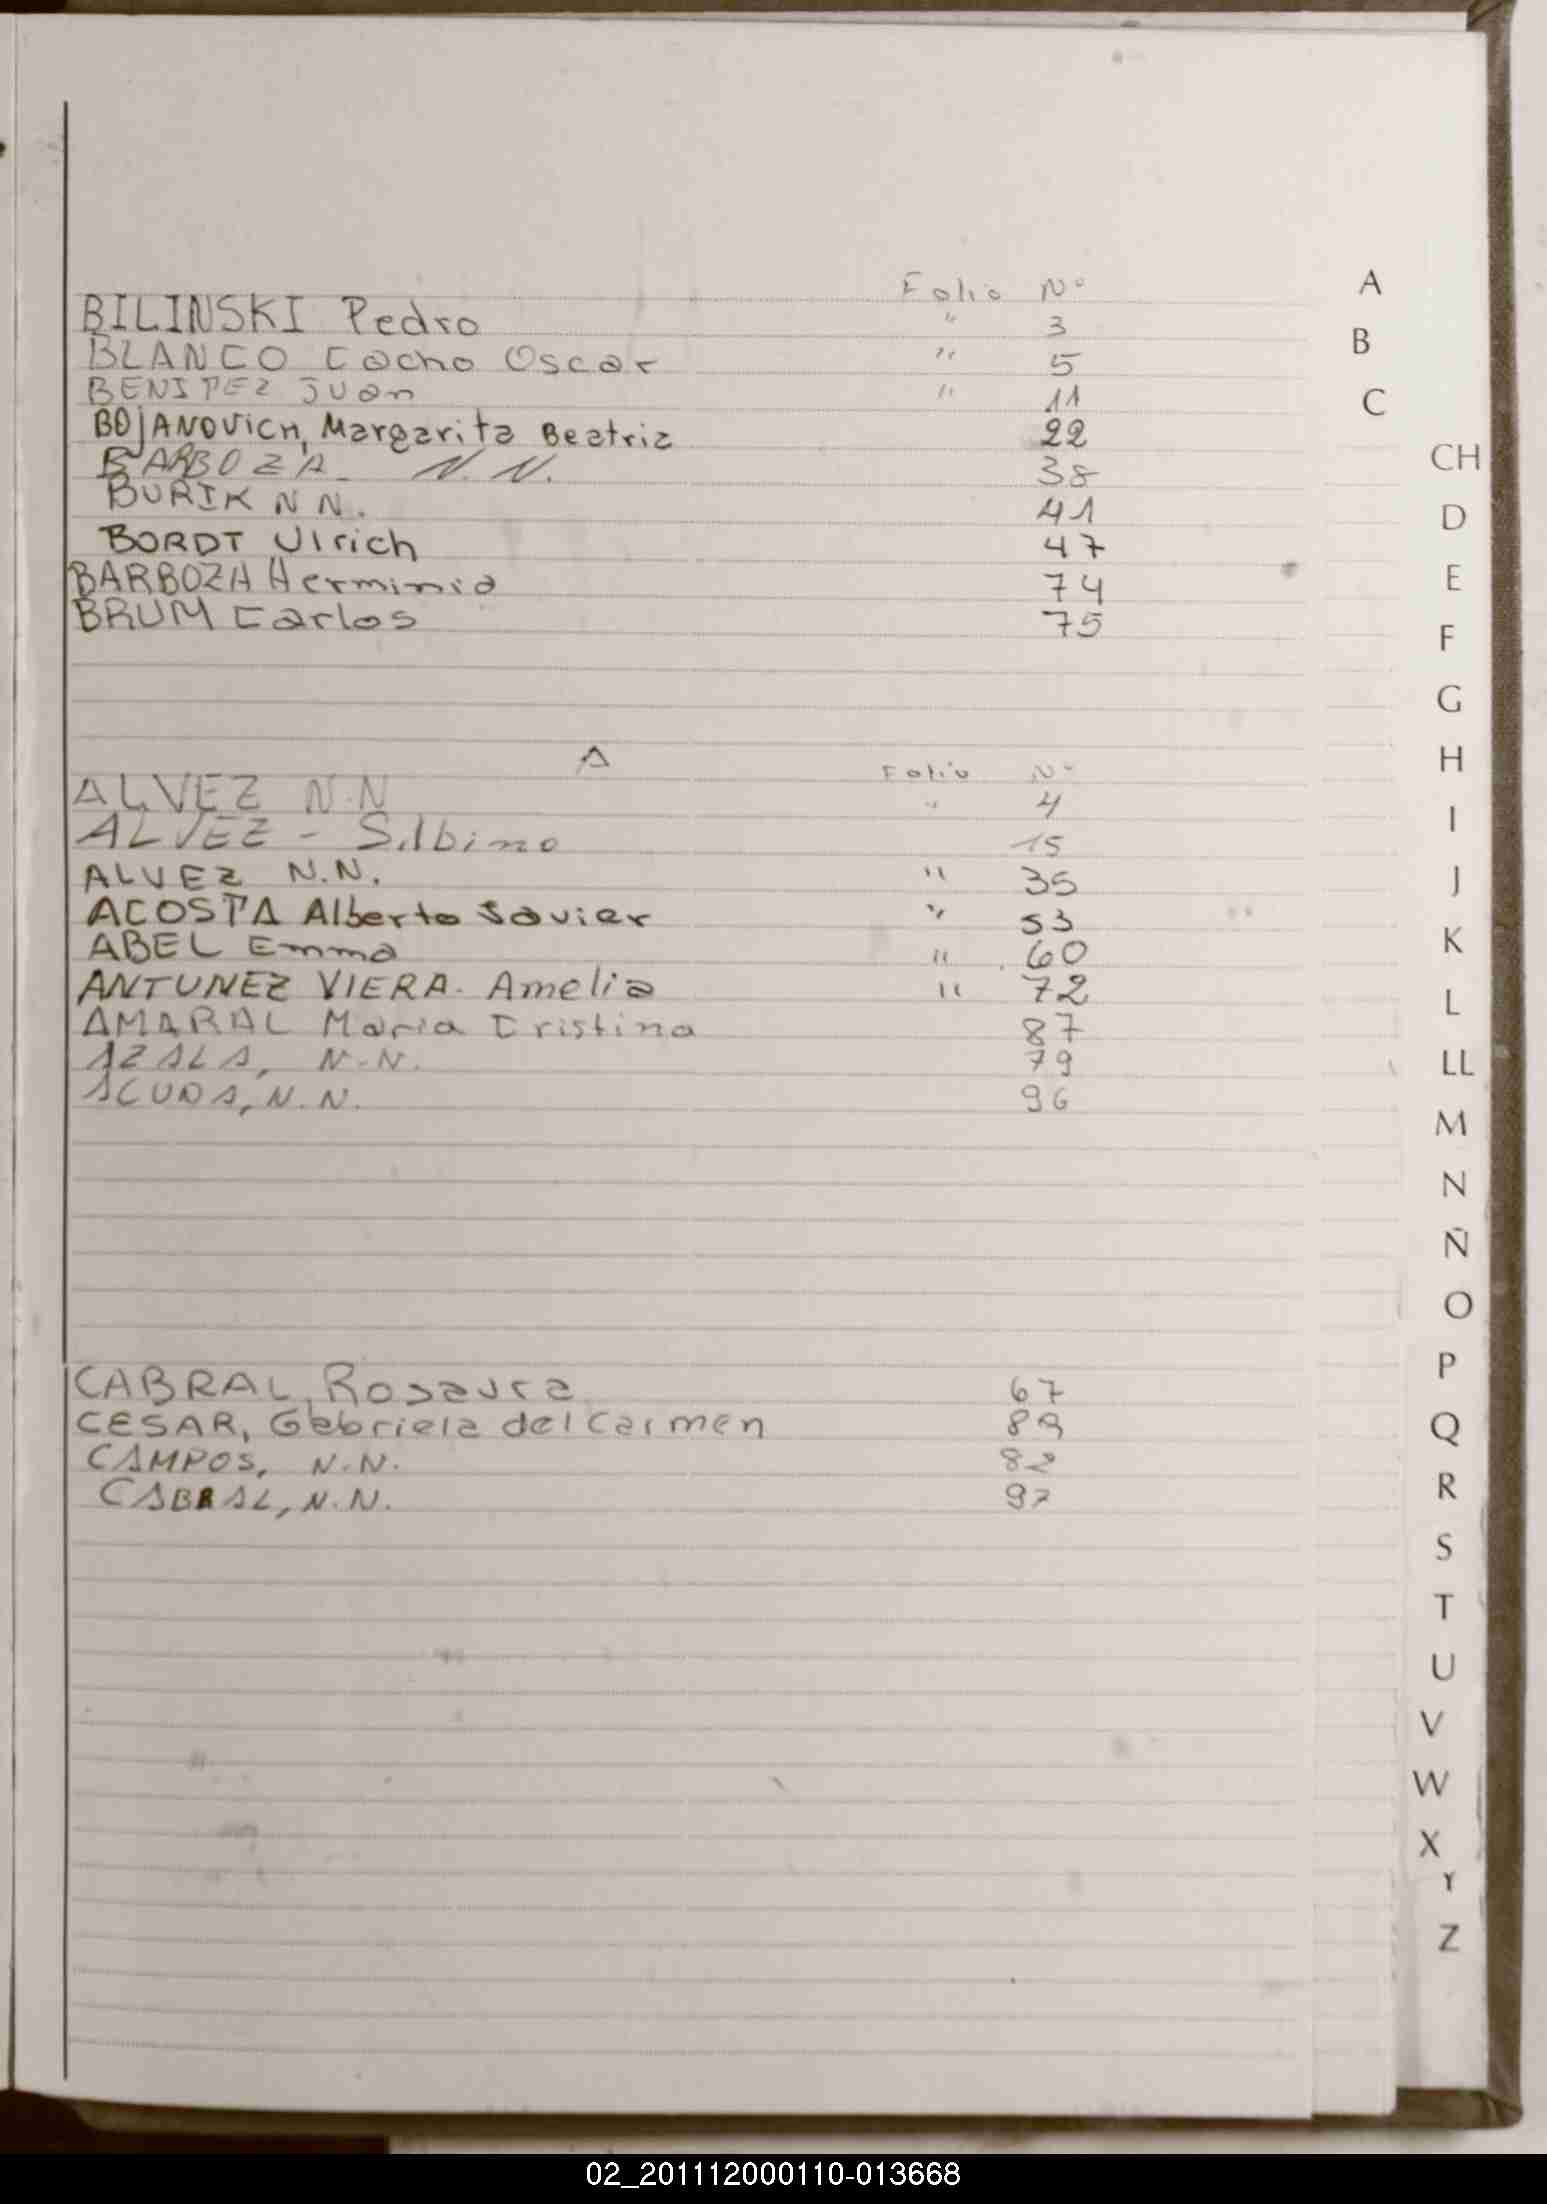 Folio Nº
BILINSKI Pedro " 3
BLANCO Cacho Oscar " 5
BENITEZ Juan " 11
BOJANOVICH, Margarita Beatriz 22
BARBOZA N.N. 38
BURIK N N. 41
BORDT Ulrich 47
BARBOZA Herminia 74
BRUM Carlos 75
A Folio Nº
ALVEZ N.N " 4
ALVEZ - Silbino 15
ALVEZ N.N. " 35
ACOSTA Alberto Javier " 53
ABEL Emma " 60
ANTUNEZ VIERA. Amelia " 72
AMARAL Maria Cristina 87
AZALA, N.N. 79
ACUDA, N.N. 96
CABRAL, Rosaura 67
CESAR, Gabriela del Carmen 89
CAMPOS, N.N. 82
CABRAL, N.N. 97
A
B
C
CH
D
E
F
G
H
I
J
K
L
LL
M
N
Ñ
O
P
Q
R
S
T
U
V
W
X
Y
Z
02_201112000110-013668